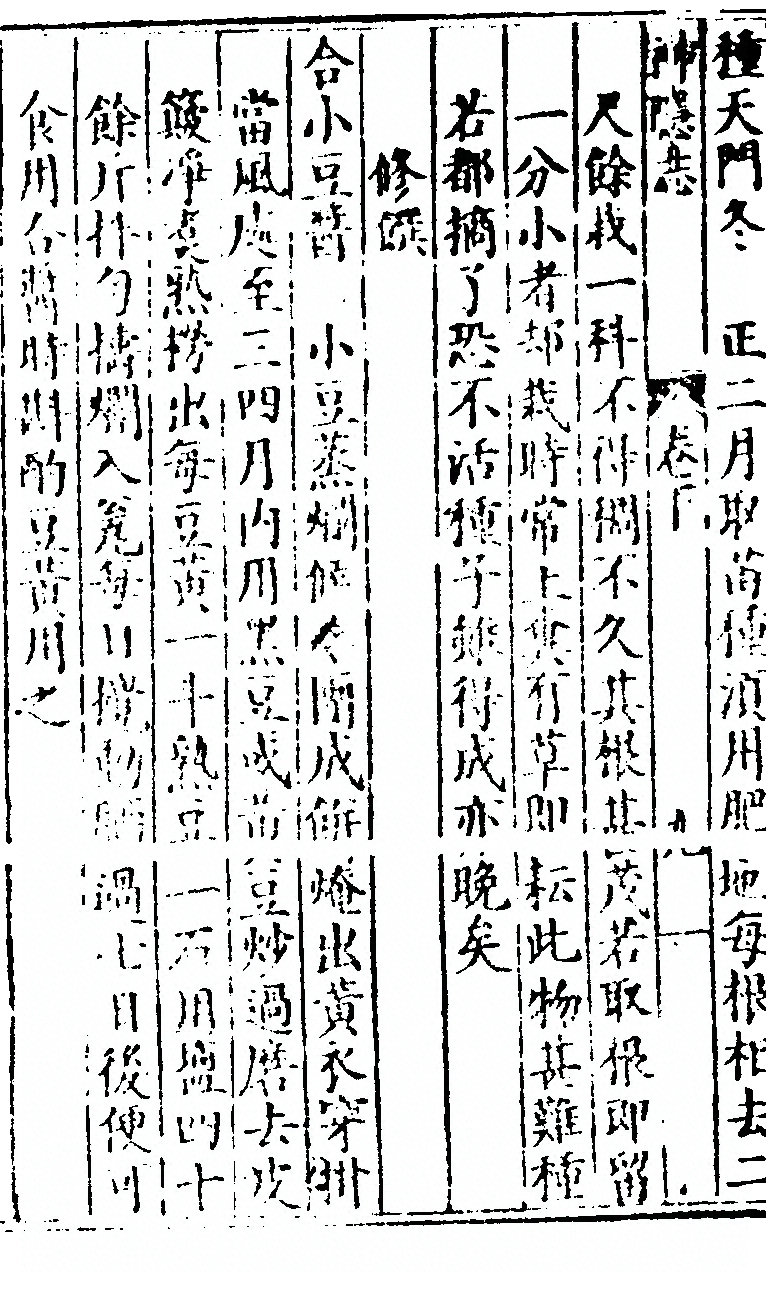 種天門冬　正二月取苗種須用肥地每根相去二
神隱志　卷下　九
尺餘栽一科不得稠不久其根甚茂若取根即留
一分小者却栽時常上糞有草即耘此物甚難種
若都摘了恐不活種子雖得成亦晚矣
修饌
合小豆醬　小豆蒸爛候冷團成餅燠出黃衣穿掛
當風處至三四月内用黑豆或黃豆炒過磨去皮
簸凈煑熟撈出每豆黃一斗熟豆一石用鹽四十
餘斤拌勻擣爛入瓮每日攪動晒過七日後便可
食用合醬時斟酌豆黃用之